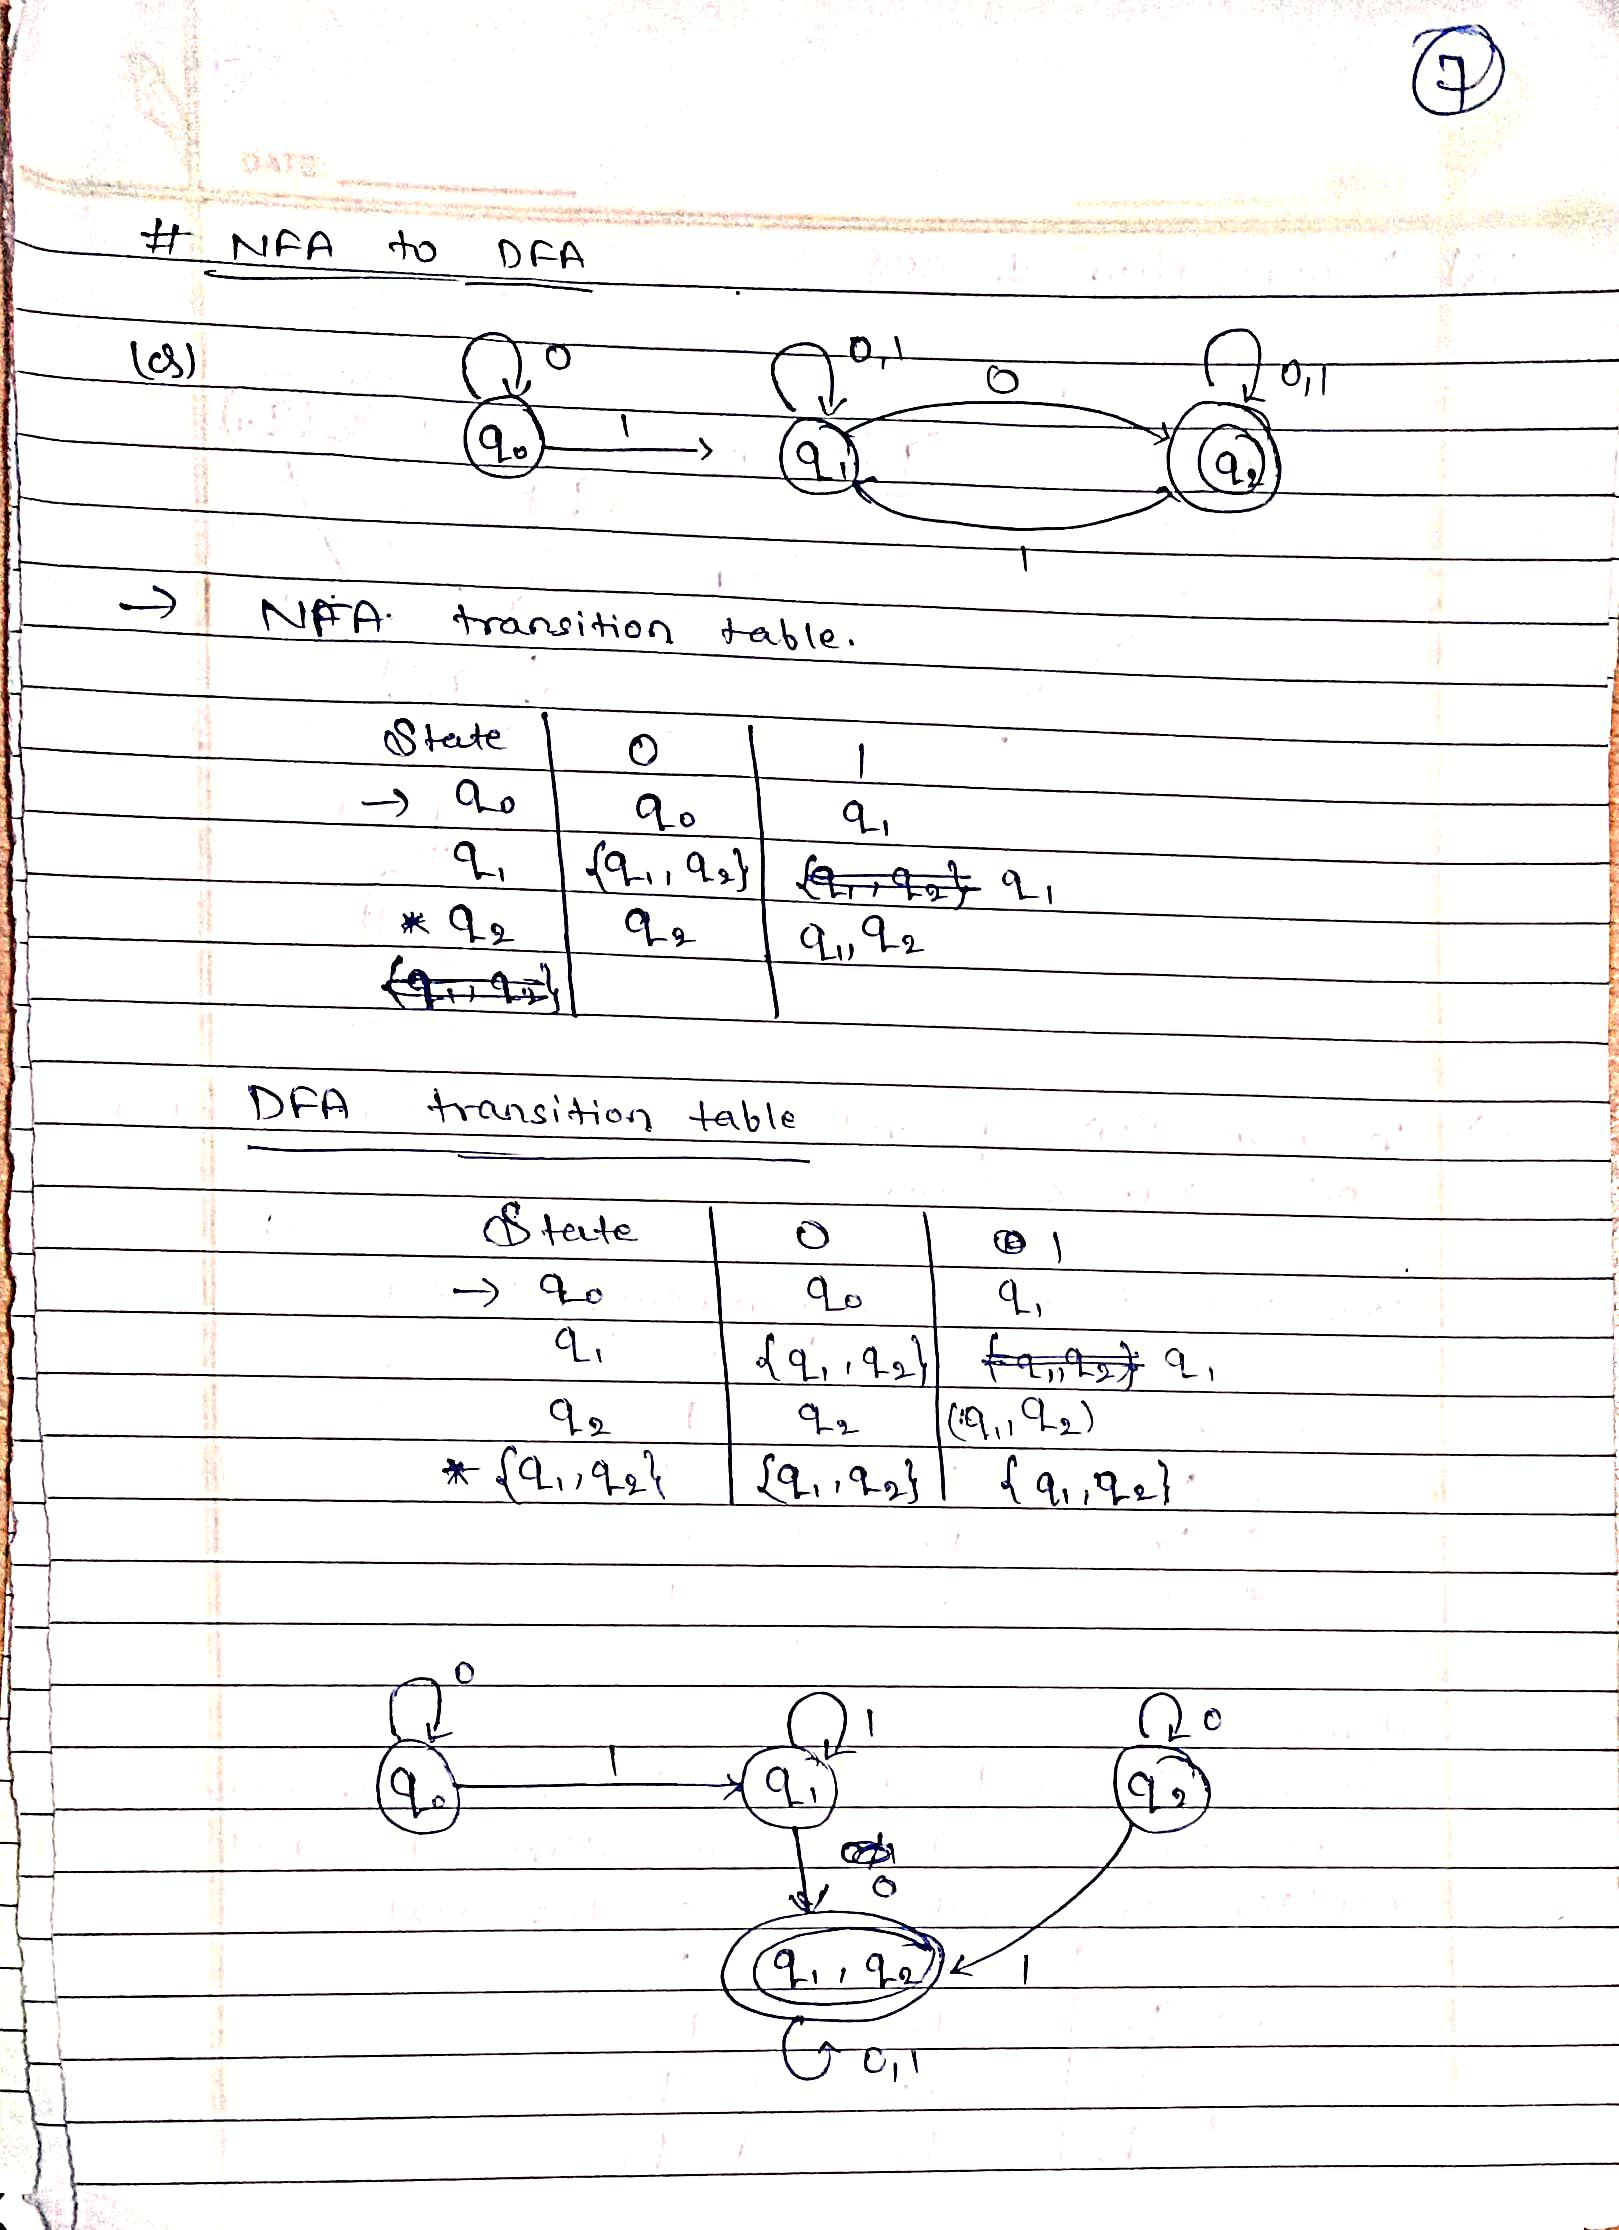 7
DATE
# NFA to DFA
(Q)
0 0,1 0 0,1
q0 1 q1 q2
1
→ NFA transition table.
State 0 1
→ q0 q0 q1
q1 {q1, q2} {q1, q2} q1
* q2 q2 q1, q2
{q1, q2}
DFA transition table
State 0 1
→ q0 q0 q1
q1 {q1, q2} {q1, q2} q1
q2 q2 (q1, q2)
* {q1, q2} {q1, q2} {q1, q2}
0 1 0
q0 1 q1 q2
0
q1, q2 1
0,1